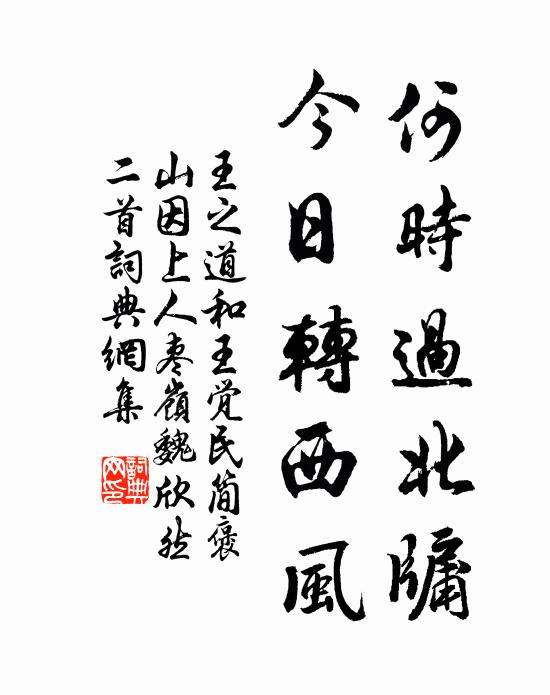 何時過北牖
今日轉西風
王之道和王觉民簡褒
山因上人枣嶺魏欣然
二首詞典網集
詞典網印